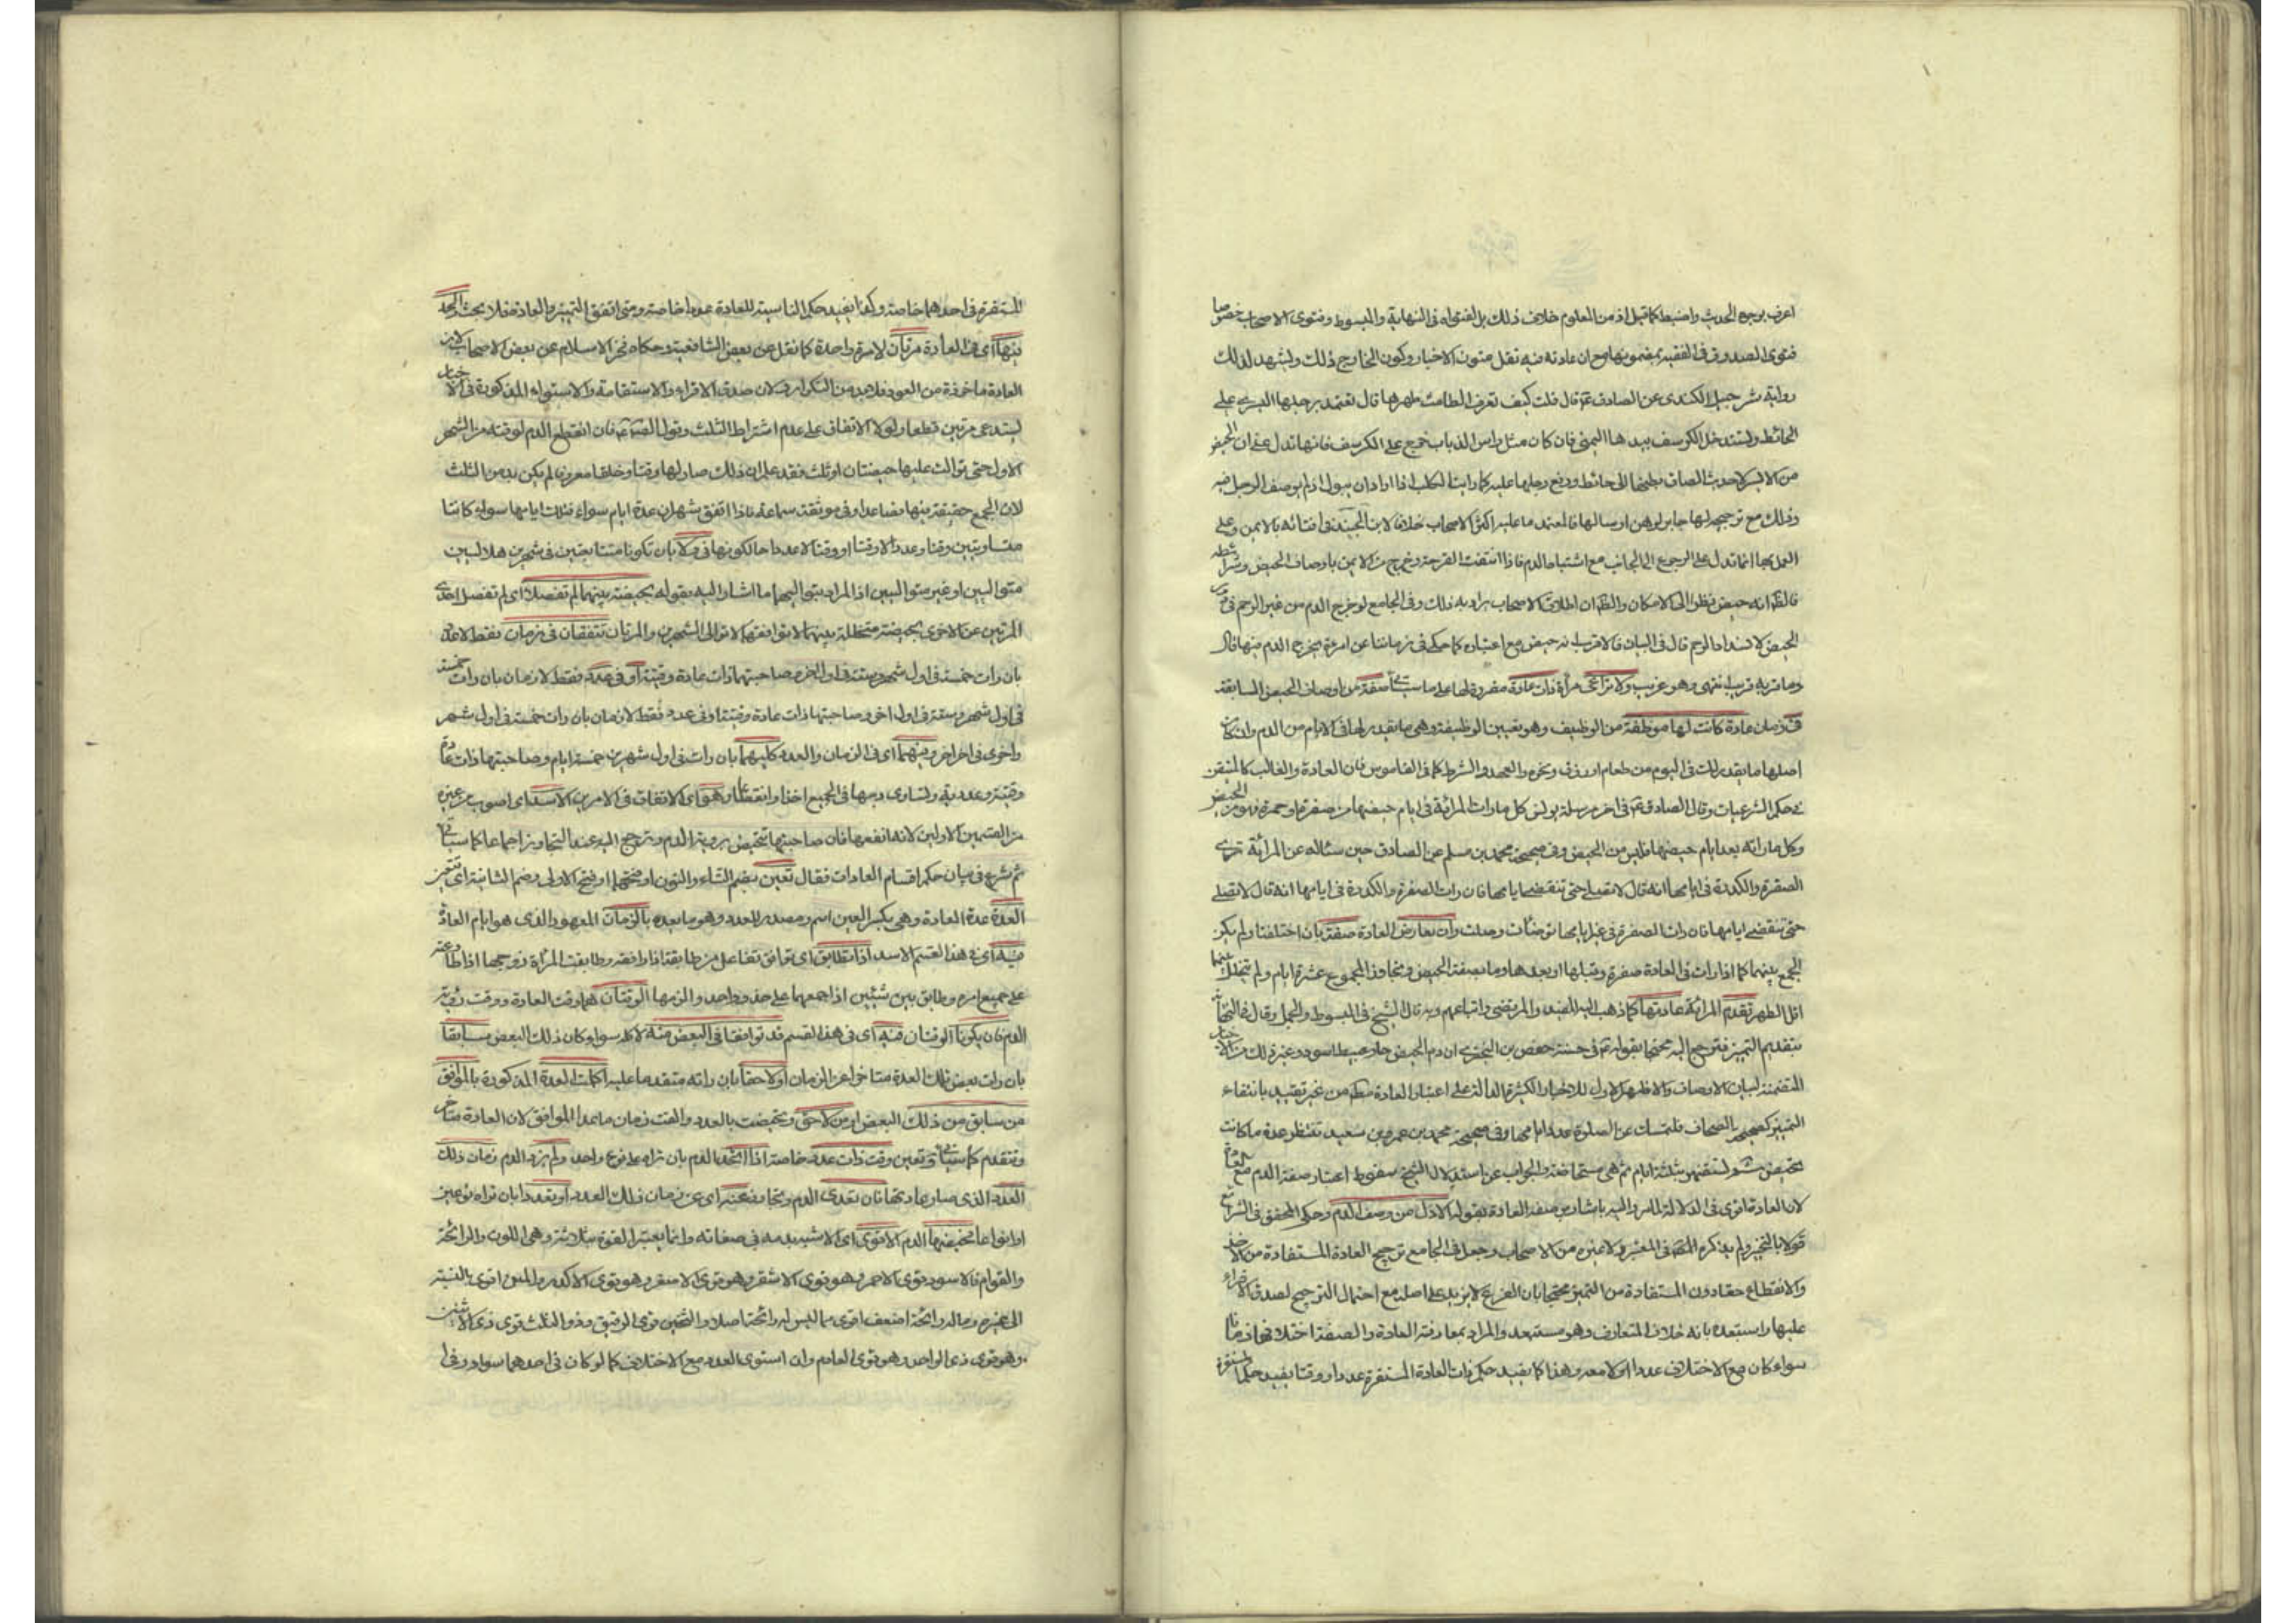 اعرف يرجع الحديث واضبط كما قيل اذ من المعلوم خلاف ذلك بل فتواه في النهاية والمبسوط وفتوى الاصحاب خصوصا
فتوى الصدوق في الفقيه بمضمونها مع ان عادته فيه نقل متون الاخبار وكون الخارج ذلك ويشهد لذلك
رواية شرحبيل الكندي عن الصادق ع قال قلت كيف تعرف الطامث طهرها قال تعتمد برجلها اليسرى على
الحائط وتستدخل الكرسف بيدها اليمنى فان كان مثل راس الذباب خرج على الكرسف فانها تدل على ان الحيض
من الايسر لاحدث الصاق بطنها الى حائط ورفع رجلها عليه كما رايت الكلب اذا اراد ان يبول اذ لم يوصف الرجل فيه
وذلك مع ترجيحه لها جابر لوهن ارسالها فالمعتمد ما عليه اكثر الاصحاب خلافا لابن الجنيد في افتائه بالايمن وعلى
العمل بها انما تدل على الرجوع الى الجانب مع اشتباه الدم فاذا انتفت القرحة وخرج من الايمن باوصاف الحيض وشرائطه
فالظ انه حيض نظرا الى الامكان والظ ان اطلاق الاصحاب يراد به ذلك وفي الجامع لو خرج الدم من غير الرحم في دور
الحيض لانسداد الرحم قال في البيان فالاقرب انه حيض مع اعتياده كما حكي في زماننا عن امرءة يخرج الدم من فيها قال
وما قربه قريب انتهى وهو غريب ولا تراعى مرأة ذات عادة مقررة لها على ما سيأتي صفة من اوصاف الحيض السابقة
في زمان عادة كانت لها موظفة من التوظيف وهو تعيين الوظيفة وهي ما يقدر لها في الايام من الدم وان كان
اصلها ما يقدر لك في اليوم من طعام او رزق ونحوه والعهد والشرط كما في القاموس فان العادة والغالب كالمتيقن
في حكم الشرعيات وقال الصادق ع في اخر مرسلة يونس كل ما رات المرائة في ايام حيضها من صفرة او حمرة فهو من الحيض
وكل ما راته بعد ايام حيضها فليس من الحيض وفي صحيحة محمد بن مسلم عن الصادق حين سئاله عن المرائة ترى
الصفرة والكدرة في ايامها انه قال لا تصلي حتى تنقضي ايامها فان رات الصفرة والكدرة في ايامها انه قال لا تصلي
حتى تنقضي ايامها فان رات الصفرة في غير ايامها توضأت وصلت وان تعارض العادة صفة بان اختلفتا ولم يكن
الجمع بينهما كما اذا رات في العادة صفرة وقبلها او بعدها وما بصفة الحيض وتجاوز المجموع عشرة ايام ولم يتخلل بينهما
اقل الطهر تقدم المرائة عادتها كما ذهب اليه المفيد والمرتضى واتباعهم وبه قال الشيخ في المبسوط والجمل وقال في النهاية
بتقديم التميز فترجع اليه محتجا بقوله ع في حسنة حفص بن البختري ان دم الحيض حار عبيط اسود وغير ذلك من الاخبار
المتضمنة لبيان الاوصاف والاظهر الاول للاخبار الكثيرة الدالة على اعتبار العادة مط من غير تقييد بانتفاء
التميز كصحيحة الصحاف فلتمسك عن الصلوة عدد ايامها وفي صحيحة محمد بن عمرو بن سعيد تنتظر عدة ما كانت
تحيض ثم تستظهر بثلثة ايام ثم هي مستحاضة والجواب عن استدلال الشيخ سقوط اعتبار صفة الدم مع العادة
لان العادة اقوى في الدلالة للامر واليه يشار من صفة العادة بقوله الاول من وصف الدم وحكى المحقق في الشرايع
قولا بالتخيير ولم يذكره المص في المعتبر ولا غيره من الاصحاب وجعل في الجامع ترجيح العادة المستفادة من الاخذ
والانقطاع حقا دون المستفادة من التميز محتجا بان الفرع لا يزيد على اصله مع احتمال الترجيح لصدق الاقراء
عليها واستبعده بانه خلاف المتعارف وهو مستبعد والمراد بمعارضة العادة والصفة اختلافهما زمانا
سواء كان مع الاختلاف عددا او لا معه وهذا كما يفيد حكم ذات العادة المستقرة عددا ووقتا يفيد حكم المستقرة
المستقرة في احدهما خاصة وكذا يفيد حكم الناسية للعادة عددا خاصة ومتى اتفق التميز والعادة فلا بحث والحد
فيها اي في العادة مرتان لا مرة واحدة كما نقل عن بعض الشافعية وحكاه فخر الاسلام عن بعض الاصحاب لان
العادة ماخوذة من العود فلا بد من التكرار ولان صدق الاقراء والاستقامة والاستواء المذكورة في الاخبار
يستدعي مرتين قطعا ولولا الاتفاق على عدم اشتراط الثلث وقول الص ع فان انقطع الدم لوقته من الشهر
الاول حتى توالت عليها حيضتان او ثلث فقد علم ان ذلك صار لها وقتا وخلقا معروفا لم يكن بد من الثلث
لان الجمع حقيقة فيها فصاعدا وفي موثقة سماعة فاذا اتفق شهران عدة ايام سواء فتلك ايامها سواء كانتا
متساويتين وقتا وعددا او وقتا او وقتا لا عددا حالكونهما في ولاء بان تكونا متتابعتين في شهرين هلاليين
متواليين او غير متواليين اذ المراد بتواليهما ما اشار اليه بقوله بحيضة بينهما لم تفصلا اي لم تفصل احدى
المرتين عن الاخرى بحيضة متخللة بينهما لا بتوافقهما لا توالى الشهرين والمرتان تتفقان في زمان فقط لا عدد
بان رات خمسة في اول شهر وستة في اول اخر وصاحبتها ذات عادة وقتية او في عدد فقط لا زمان بان رات خمسة
في اول شهر وستة في اول اخر وصاحبتها ذات عادة وقتية او في عدد فقط لا زمان بان رات خمسة في اول شهر
واخرى في اخر اخر وفيهما اي في الزمان والعدد كليهما بان رات في اول شهرين خمسة ايام وصاحبتها ذات عادة
وقتية وعددية وتساوى دمها في الجميع اخذا وانقطاعا وهو اي الاتفاق في الامرين الاسد اي اصوب من غيره
من القسمين الاولين لانه انفعها فان صاحبتها تتحيض برؤية الدم وترجع اليه عند التجاوز اجماعا كما سيأتي
ثم شرع في بيان حكم اقسام العادات فقال تعين بضم التاء والنون او فتحهما او فتح الاولى وضم الثانية اي تتعين
العدة عدة العادة وهي بكسر العين اسم ومصدر للعدد وهو ما بعده بالزمان المعهود الذي هو ايام العادة
فيه اي في هذا القسم الاسد اذا تطابق اي توافق تفاعل من طابقه اذا وافقه وطابقت المرأة زوجها اذا طاوعته
على جميع امره وطابق بين شيئين اذا جمعهما على حذو واحد والزمها الوقتان هما وقت العادة ووقت رؤية
الدم فان يكونا الوقتان فيه اي في هذا القسم قد توافقا في البعض منه لا كله سواء كان ذلك البعض سابقا
بان رات بعض تلك العدة متاخرا عن الزمان او لاحقا بان راته متقدما عليه اكملت العدة المذكورة بالموافق
من سابق من ذلك البعض او من لاحق وتحيضت بالعدد والغت زمان ما عدا الموافق لان العادة متاخر
وتتقدم كما سيأتي وتعين وقت ذات عدد خاصة اذا اتحد الدم بان تراه على نوع واحد ولم يزد الدم زمان ذلك
العدد الذي صار عادتها فان تعدى الدم وتجاوز عنه اي عن زمان ذلك العدد او تعدد بان تراه نوعين
او انواعا تحيضها الدم الاقوى اي الاشبه به في صفاته وانما يعتبر القوة بثلاثة وهي اللون والرائحة
والقوام فالاسود قوي الاحمر وهو قوي الاشقر وهو قوي الاصفر وهو قوي الاكدر والمنتن اقوى بالنسبة
الى غيره وماله رائحة اضعف اقوى مما ليس له رائحة اصلا والثخين قوي الرقيق وذو الثلث قوي ذي الاثنين
وهو قوي ذي الواحد وهو قوي العادم وان استوى العدد مع الاختلاف كما لو كان في احدهما سواد وفي ا